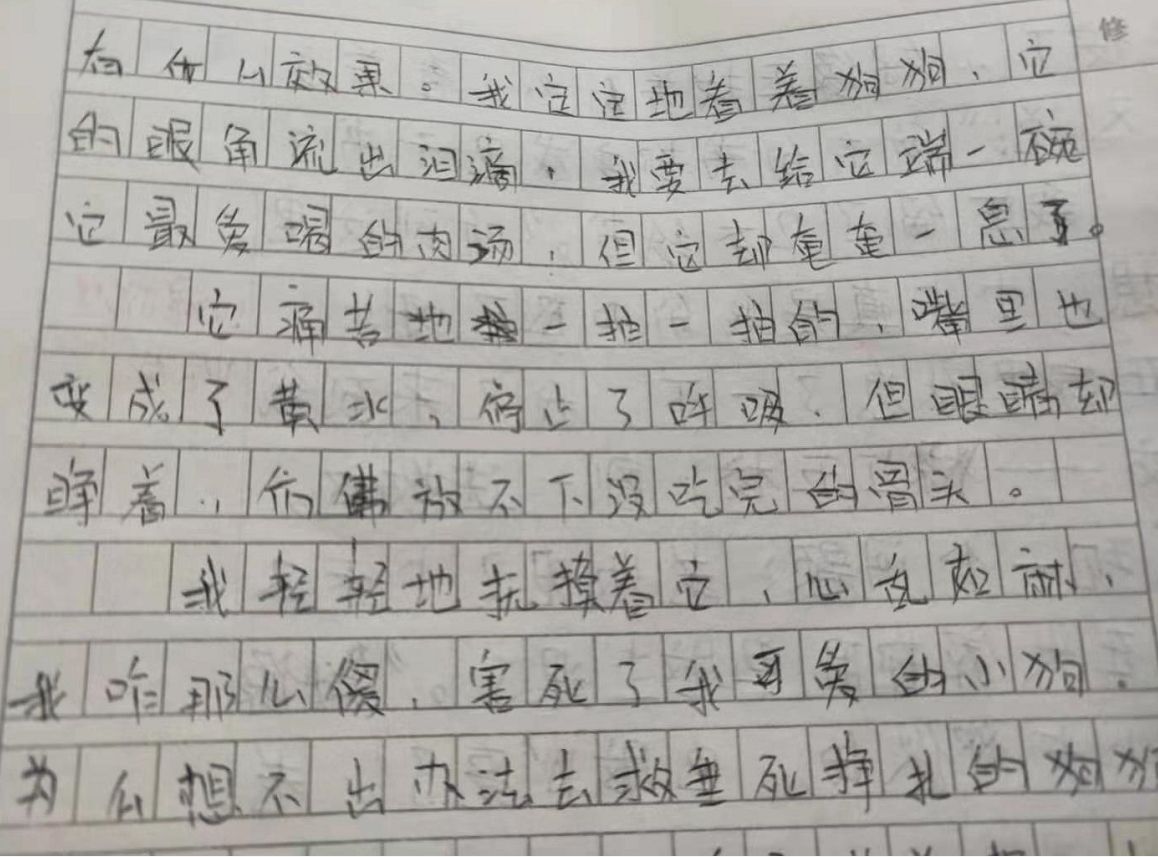 修
有什么效果。我定定地看着狗狗,它
的眼角流出泪滴,我要去给它端一碗
它最爱喝的肉汤,但它却奄奄一息了。
它痛苦地一抽一抽的,嘴里也
变成了黄水,停止了呼吸,但眼睛却
睁着,仿佛放不下没吃完的骨头。
我轻轻地抚摸着它,心乱如麻,
我咋那么傻,害死了我可爱的小狗,
为么想不出办法去救垂死挣扎的狗狗